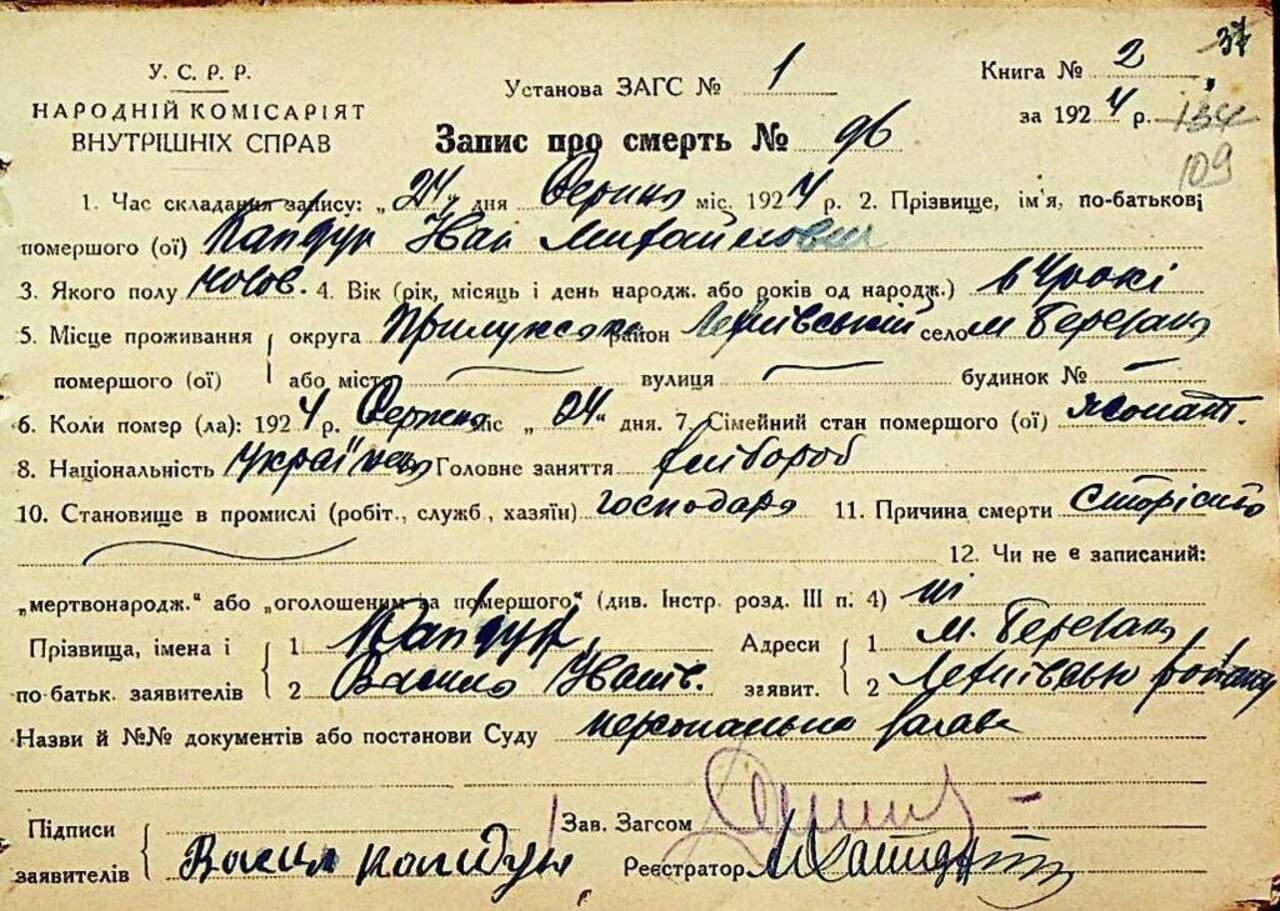 37
У. С. Р. Р. Установа ЗАГС № 1 Книга № 2
НАРОДНІЙ КОМІСАРІЯТ за 1924 р. 134
ВНУТРІШНІХ СПРАВ Запис про смерть № 96
109
1. Час складання запису: „24" дня Серпня міс. 1924 р. 2. Прізвище, ім'я, по-батькові
помершого (ої) Кайдун Иван Михайлович
3. Якого полу чолов. 4. Вік (рік, місяць і день народж. або років од народж.)
5. Місце проживання округа Прилуцька район село м Березань
помершого (ої) або місто вулиця будинок № —
6. Коли помер (ла): 1924 р. Серпня міс „24" дня. 7. Сімейний стан помершого (ої) жонат.
8. Національність Українець Головне заняття хлібороб
10. Становище в промислі (робіт., служб., хазяїн) господарь 11. Причина смерти
12. Чи не є записаний:
„мертвонародж." або „оголошеним за помершого" (див. Інстр. розд. III п. 4) ні
Прізвища, імена і 1 Кайдун Адреси 1 м. Березань
по батьк. заявителів 2 Василь Иванов. заявит. 2 району
Назви й №№ документів або постанови Суду персональна заява
Підписи Зав. Загсом
заявителів Васил Реєстратор